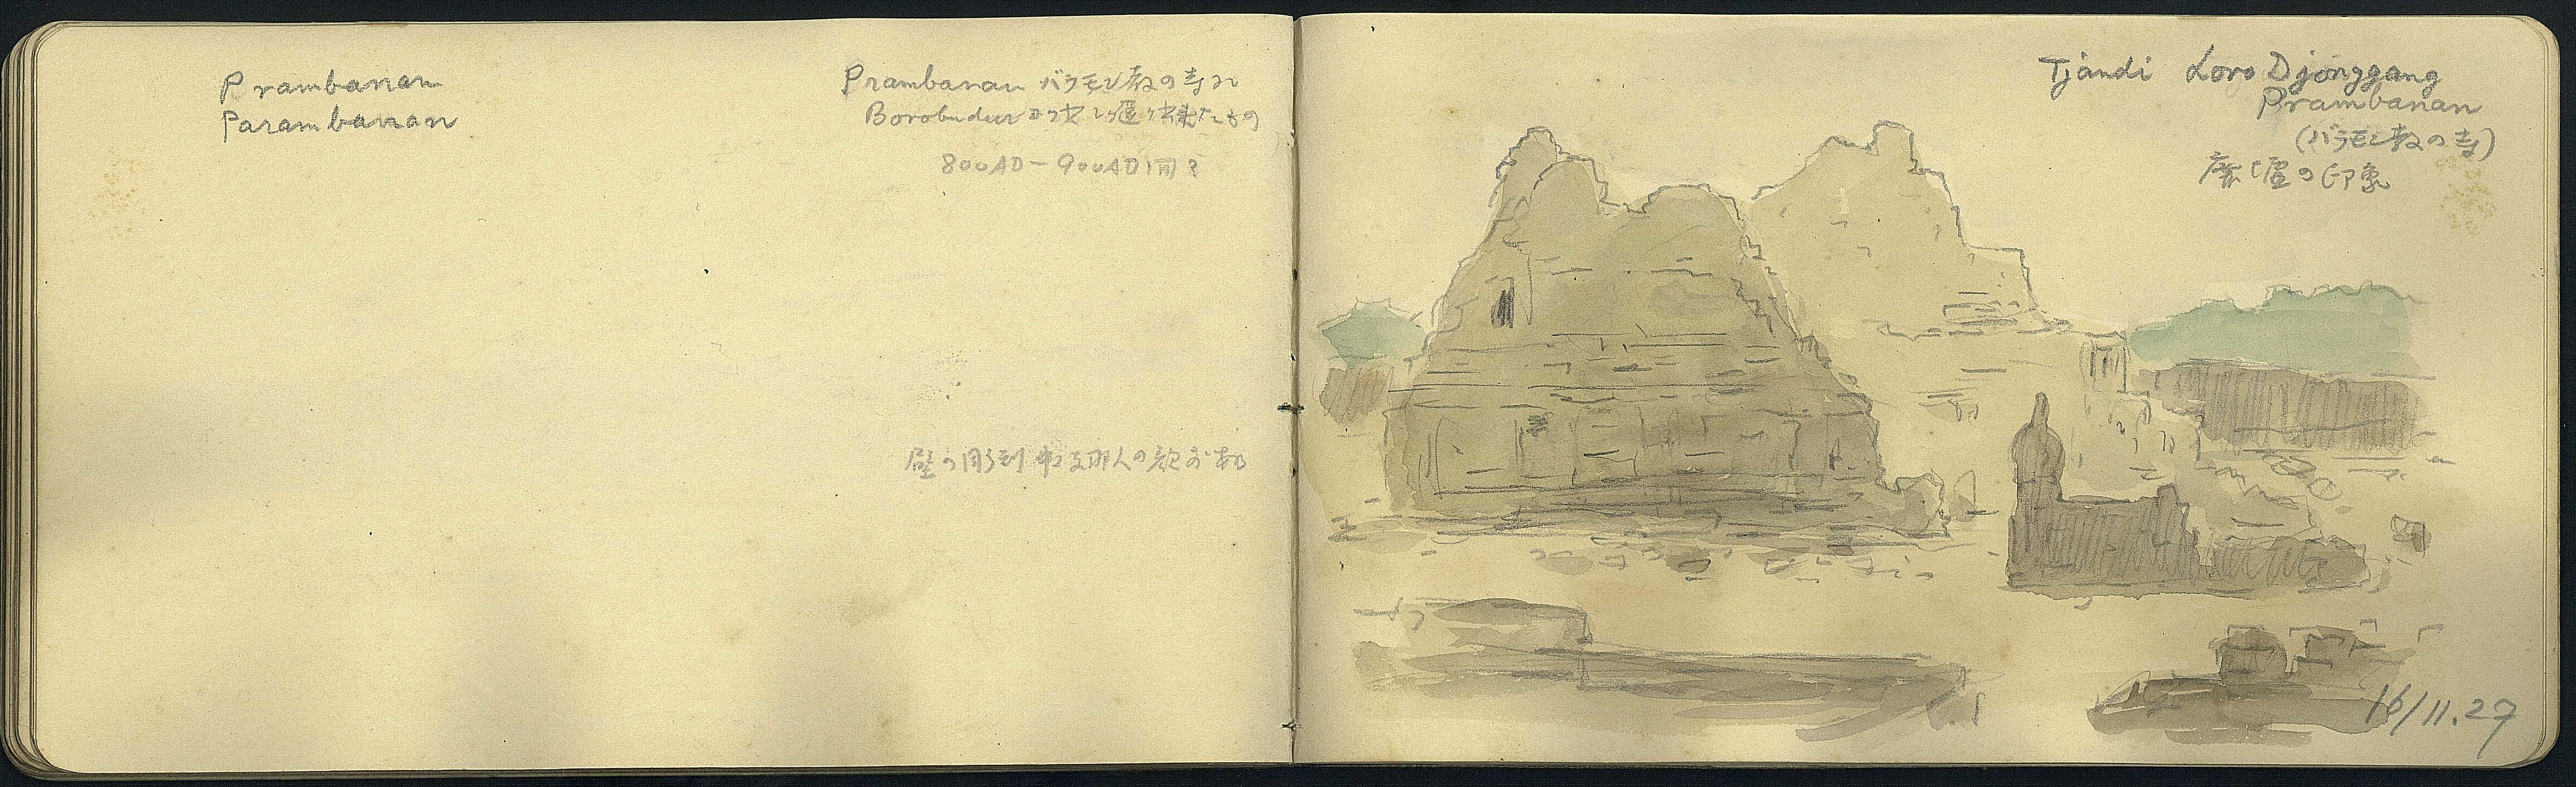 Prambanan
Parambanan
Prambanan バラモン教の寺に
Borobudur
800AD－900AD間?
壁の彫刻 中 支那人の 顔がある
Tjandi Loro Djonggang
Prambanan
(バラモン教の寺)
の印象
16/11.27